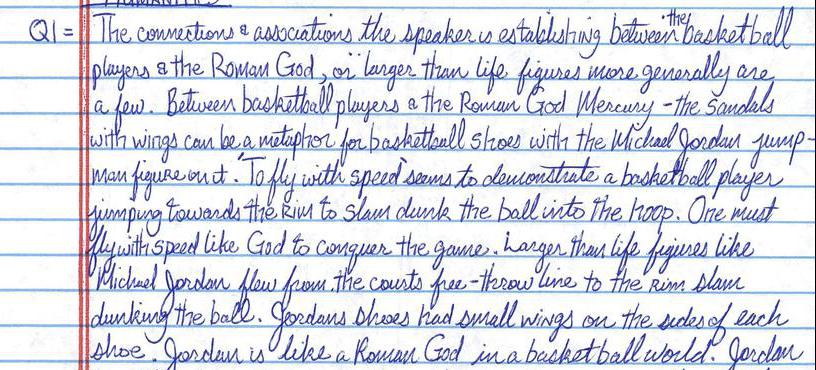 HUMANITIES
Q1 = The connections & associations the speaker is establishing between the basketball
players & the Roman God, or larger than life figures more generally are
a few. Between basketball players & the Roman God Mercury - the Sandals
with wings can be a metaphor for basketball shoes with the Michael Jordan jump-
man figure on it. "To fly with speed" seems to demonstrate a basketball player
jumping towards the Rim to slam dunk the ball into the hoop. One must
fly with speed like God to conquer the game. Larger than life figures like
Michael Jordan flew from the courts free-throw line to the Rim slam
dunking the ball. Jordans shoes had small wings on the sides of each
shoe. Jordan is like a Roman God in a basketball world. Jordan